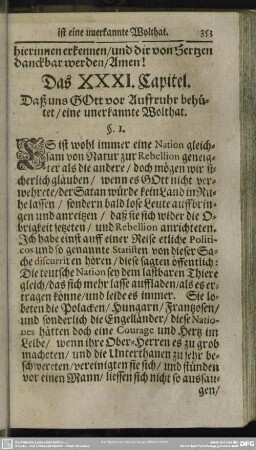 ist eine unerkannte Wolthat. 353
hierinnen erkennen/und dir von Hertzen
danckbar werden/Amen!
Das XXXI. Capitel.
Daß uns GOtt vor Auffruhr behü-
tet/eine unerkannte Wolthat.
§. 1.
ES ist wohl immer eine Nation gleich-
sam von Natur zur Rebellion geneig-
ter als die andere/doch mögen wir si-
cherlich glauben/wenn es GOtt nicht ver-
wehrete/der Satan würde kein Land in Ru-
he lassen/sondern bald lose Leute auffbrin-
gen und anreitzen/daß sie sich wider die O-
brigkeit setzeten/und Rebellion anrichteten.
Ich habe einst auff einer Reise etliche Politi-
cos und so genannte Statisten von dieser Sa-
che discurriren hören/diese sagten öffentlich:
Die teutsche Nation sey dem lastbaren Thiere
gleich/das sich mehr lasse auffladen/als es er-
tragen könne/und leide es immer. Sie lo-
beten die Polacken/Hungarn/Frantzosen/
und sonderlich die Engelländer/diese Natio-
nes hätten doch eine Courage und Hertz im
Leibe/wenn ihre Ober-Herren es zu grob
macheten/und die Unterthanen zu sehr be-
schwereten/vereinigten sie sich/und stünden
vor einen Mann/liessen sich nicht so aussau-
gen/